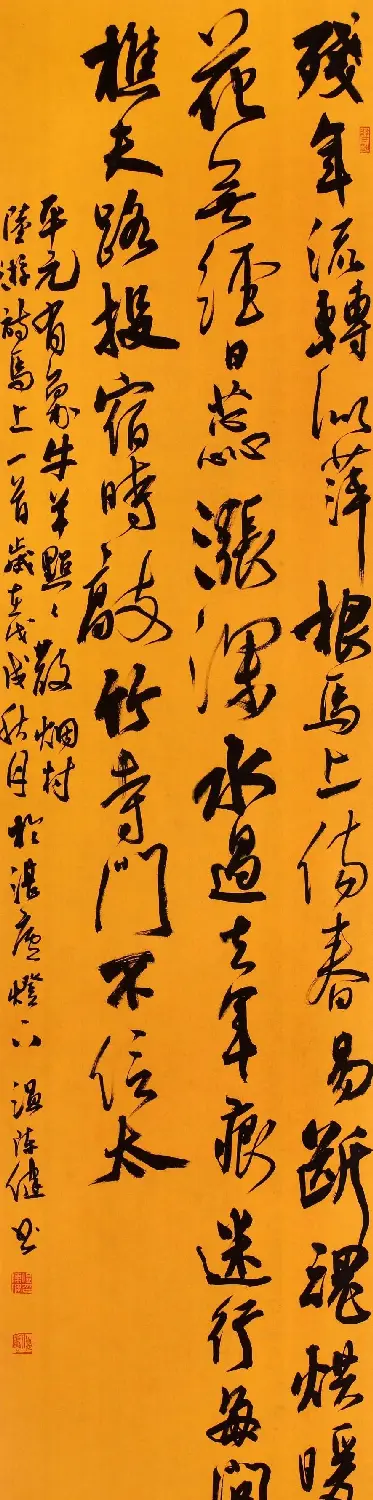 殘年流轉似萍根馬上傷春易斷魂烘暖
花無經日蕊漲深水過去年痕迷行每問
樵夫路投宿時敲竹寺門不信太
平元有象牛羊點々散烟村
陸游詩馬上一首歲在戊戌秋月於湛廬燈下溫陳健書